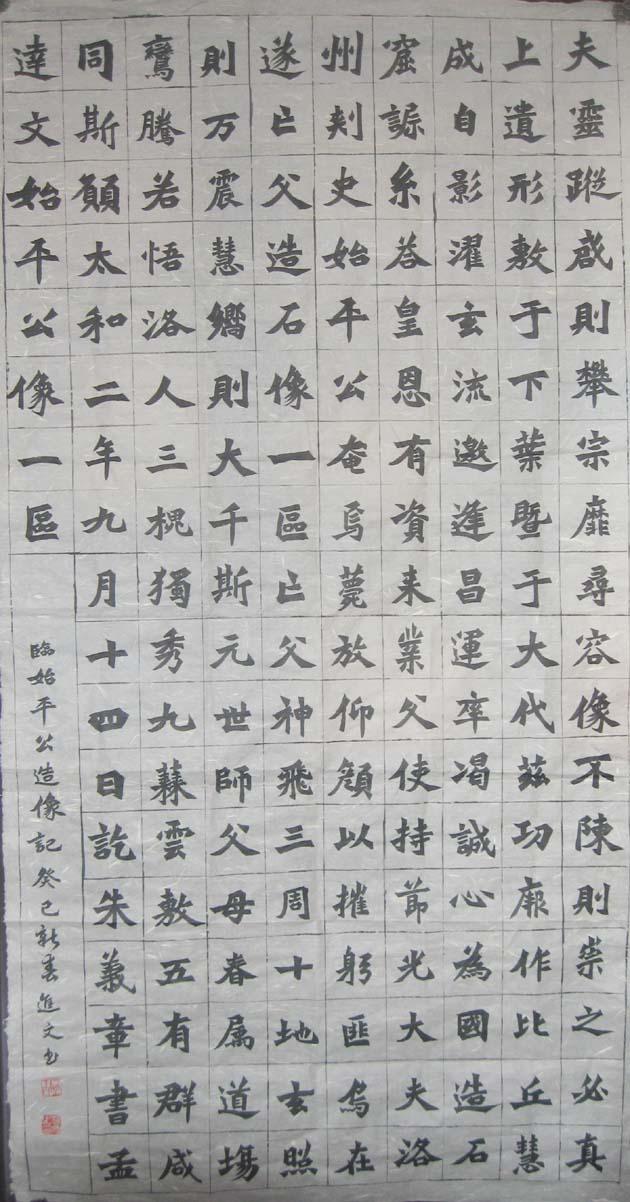 夫靈蹤啟則攀宗靡尋容像不陳則崇之必真
上遺形敷于下葉暨于大代茲功厥作比丘慧
成自影濯玄流邀逢昌運率渴誠心為國造石
窟訴糸荅皇恩有資来業父使持莭光大夫洛
州刾史始平公奄焉薨放仰顏以摧躬匪烏在
遂亡父造石像一區亡父神飛三周十地玄照
則万震慧嚮則大千斯元世師父母眷属道場
鸞騰若悟洛人三槐獨秀九蕀雲敷五有群咸
同斯願太和二年九月十四日訖朱義章書孟
達文始平公像一區
臨始平公造像記癸巳新春進文书